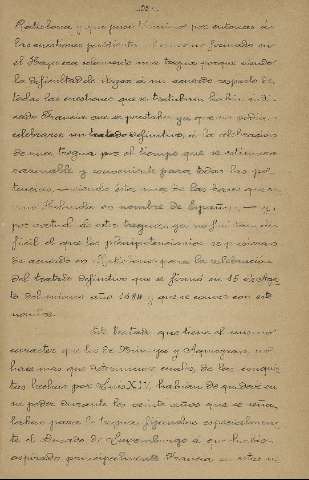 Ratisbona y que puso término por entonces á
las cuestiones pendientes. El acuerdo firmado en
el Haya era solamente una tregua porque viendo
la dificultad de llegar á un acuerdo respecto de
todas las cuestiones que se trataban había indi-
cado Francia que se prestaba ya que no podian
celebrarse un tratado definitivo, á la celebracion
de una tregua por el tiempo que se estimara
razonable y conveniente para todas las po-
tencias, siendo esta una de las bases que
Holanda en nombre de España y
por virtud de esta tregua ya no fué tan di-
ficil el que los plenipotenciarios se pusieran
de acuerdo en Ratisbona para la celebracion
del tratado definitivo que se firmó en 15 de Agos-
to del mismo año 1684 y que se conoce con este
nombre.
Este tratado que tiene el mismo
caracter que los de Nimega y Aquisgran, no
hace mas que determinar cuales, de las conquis-
tas hechas por Luis XIV, habian de quedar en
su poder durante los veinte años que se seña-
laban para la tregua figurando especialmen-
te el Ducado de Luxemburgo á que habia
aspirado principalmente Francia en estas